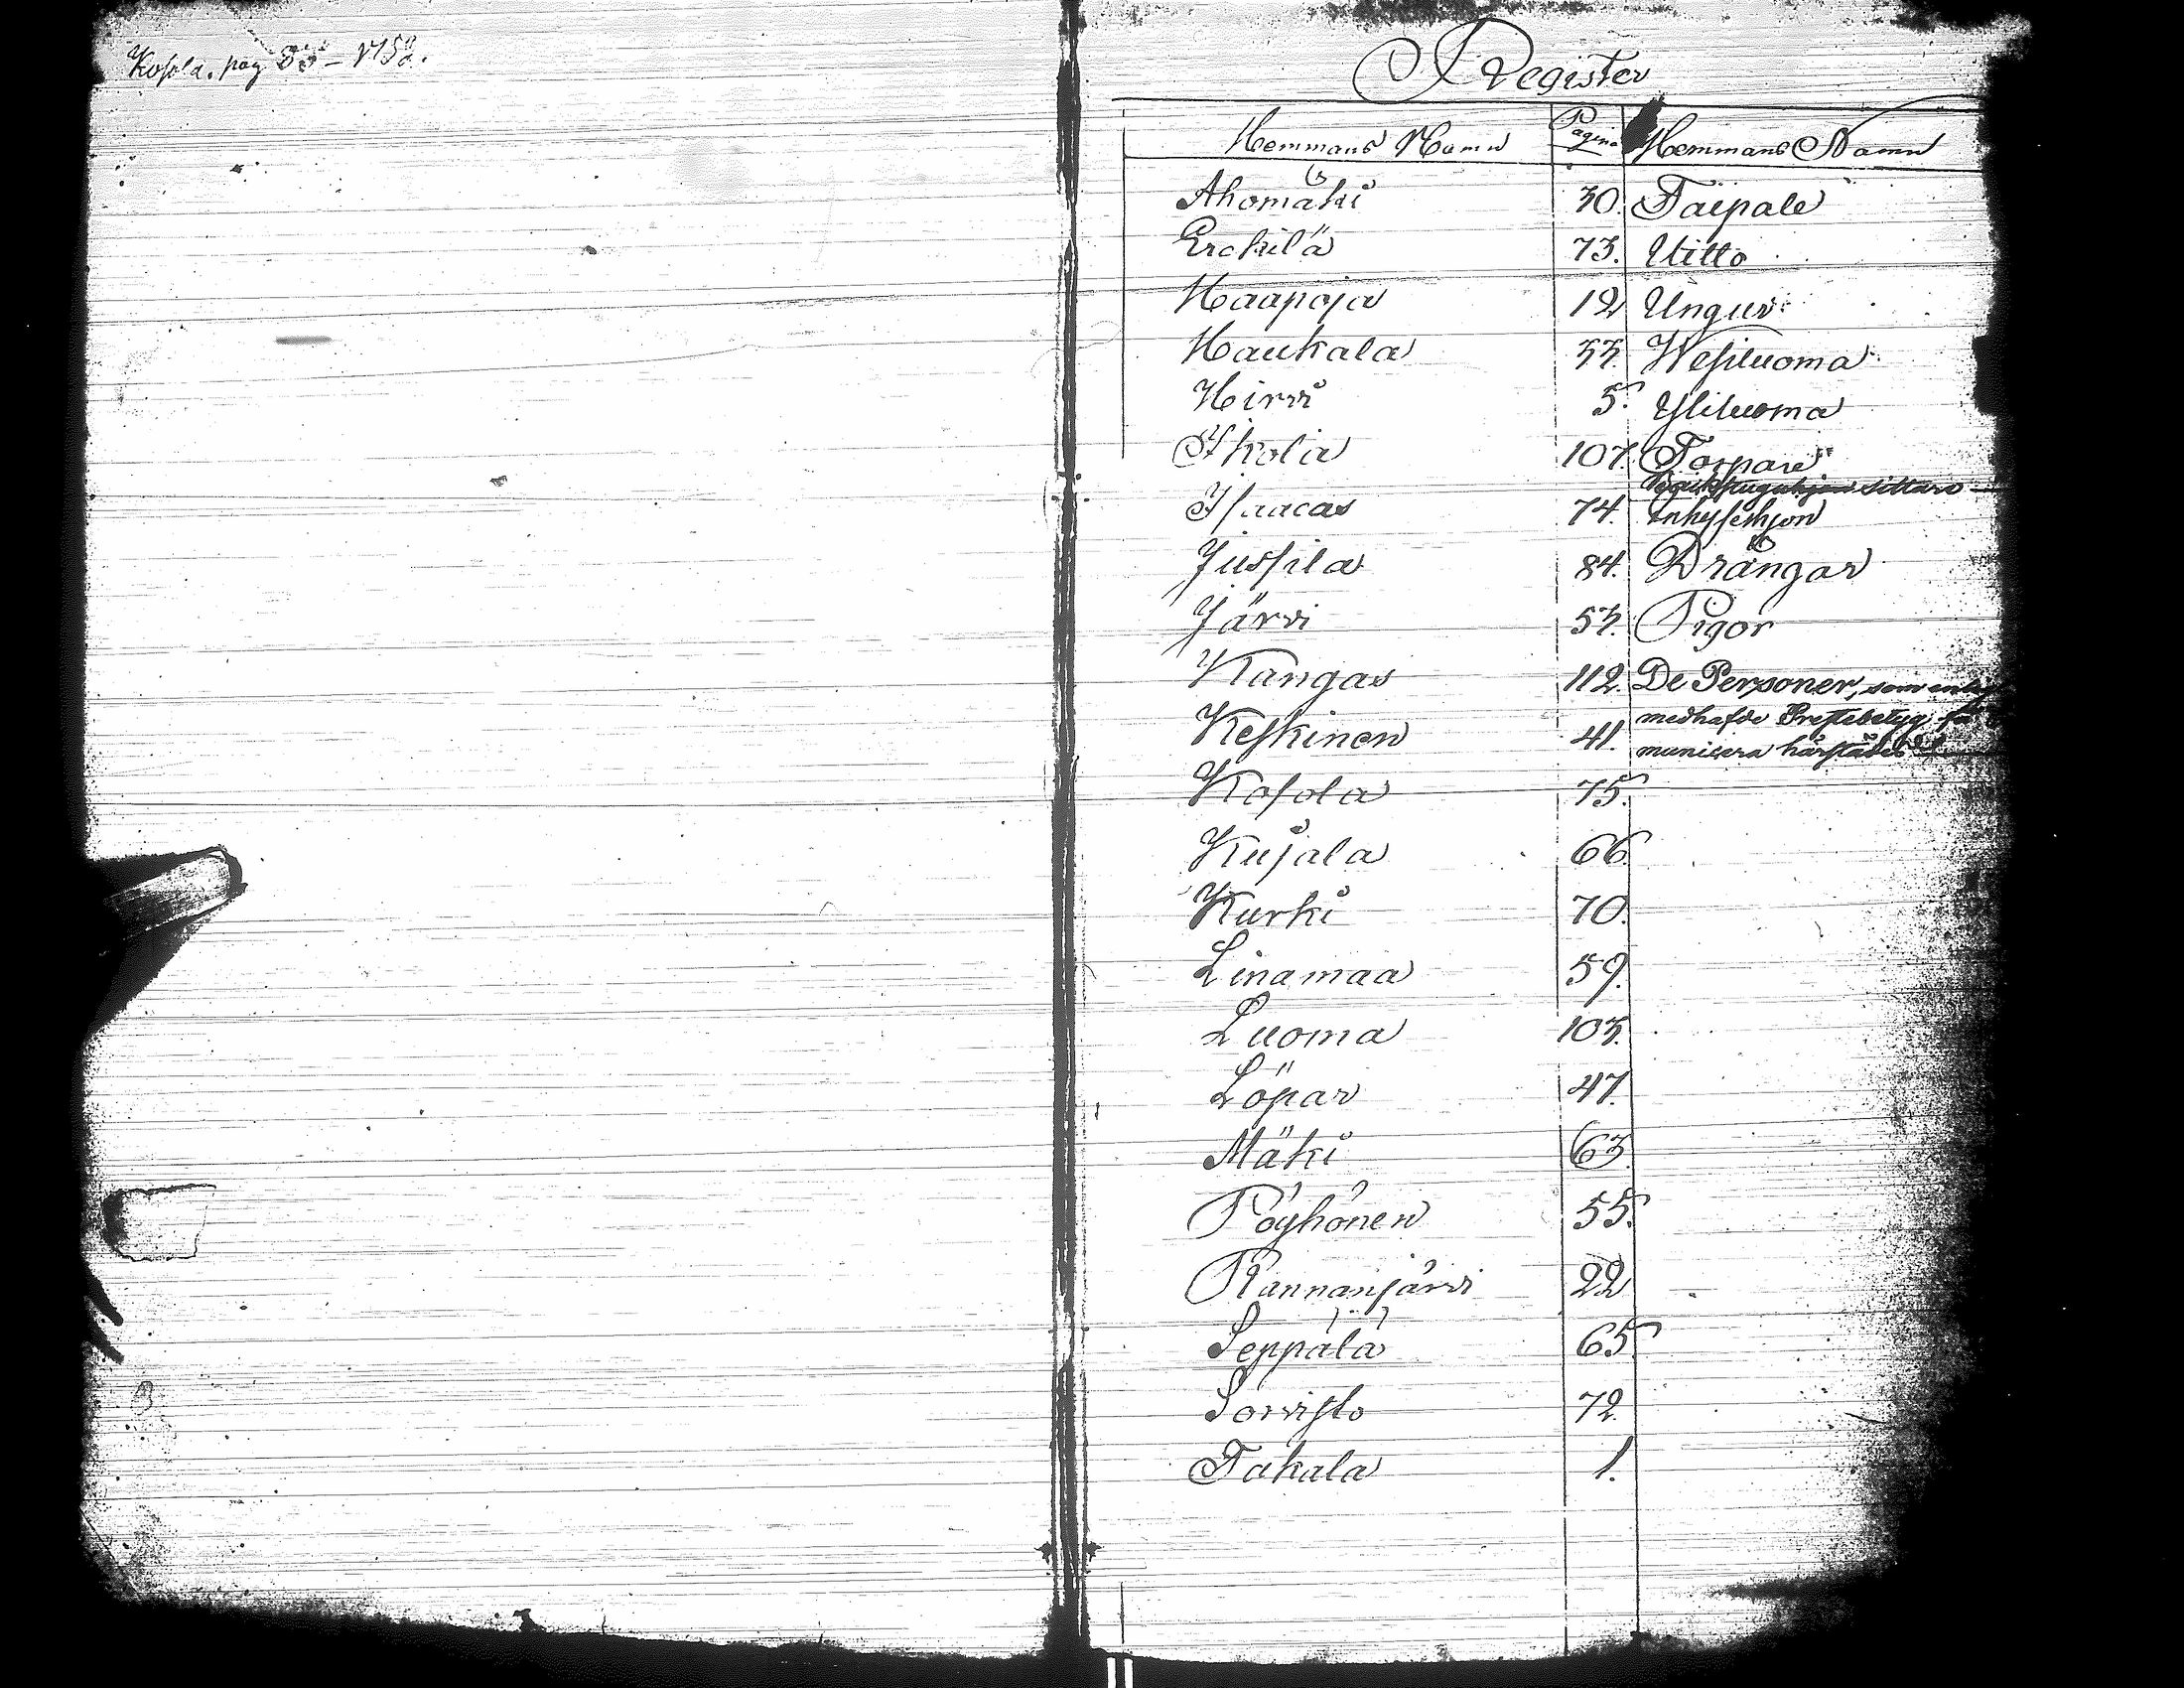 Kosola. pag 85 –
Register
Hemmans Namn Pagina Hemmans Namn
Ahomäki 30. Taipale
Erckilä 73. Uitto
Haapoja 12 Ungur
Haukala 33. Wesiluoma
Hirvi 5. Yliluoma
Ikola 107. Torpare
Isaacas 74. Inhyseshjon
Jussila 84. Drängar
Järvi 53. Pigor
Kangas 112. De Personer, som
Keskinen 41. medhafde Prestebetyg
municera härstädes
Kosola 75.
Kujala 66.
Kurki 70.
Linamaa 59.
Luoma 103.
Löpar 47.
Mäki 63.
Pöyhönen 55.
Rannanjärvi 22
Seppälä 65
Sorvisto 72.
Takala 1.